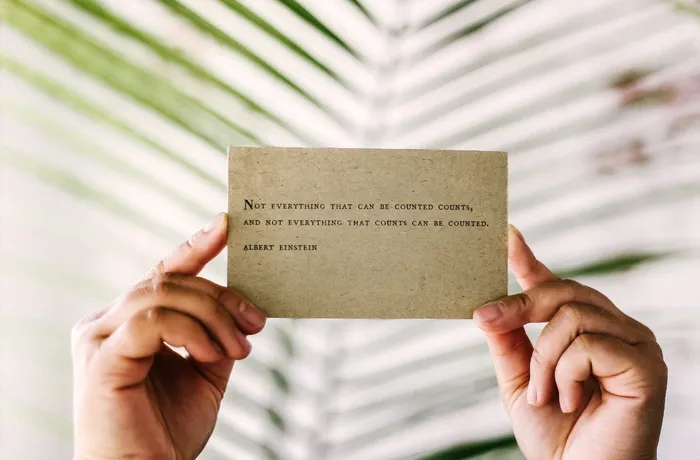 Not everything that can be counted counts,
and not everything that counts can be counted.
Albert Einstein